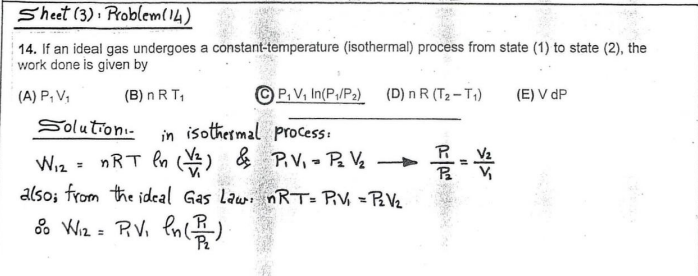 Sheet (3): Problem (14)
14. If an ideal gas undergoes a constant-temperature (isothermal) process from state (1) to state (2), the
work done is given by
(A) P₁ V₁ (B) n R T₁ Ⓒ P₁ V₁ ln(P₁/P₂) (D) n R (T₂ – T₁) (E) V dP
Solution:- in isothermal process:
W₁₂ = nRT ln (V₂/V₁) & P₁V₁ = P₂ V₂ → P₁/P₂ = V₂/V₁
also; from the ideal Gas Law: nRT = P₁V₁ = P₂V₂
∴ W₁₂ = P₁V₁ ln(P₁/P₂)